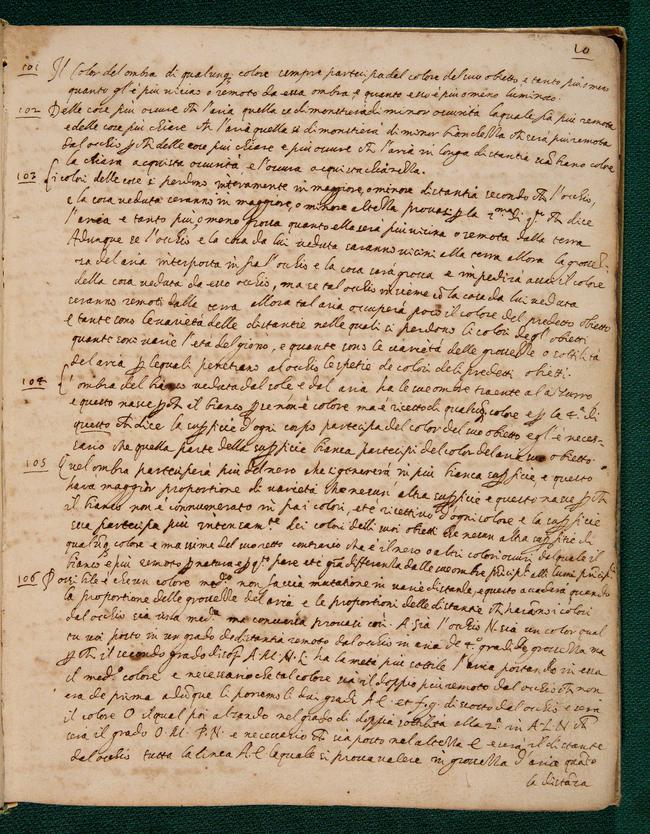 10
101 Il color del ombra di qualunq colore sempre partecipa del colore del suo obietto e tanto più o meno
quanto gl'è più vicino o remoto da essa ombra e quanto esso è più o meno luminoso.
102 Delle cose più oscure ch l'aria quella se dimostrerà di minor oscurità la quale sia più remota
e delle cose più chiare ch l'aria quella se dimostrerà di minor bianchezza ch sarà più remota
dal ochio delle cose più chiare e più oscure ch l'aria in longa distantia colore
la chiara acquista oscurità e l'oscura acquista chiarezza.
103 Li colori delle cose si perdono interamente in maggiore, o minore distantia secondo ch l'ochio,
e la cosa veduta saranno in maggiore, o minore altezza provasi la ch dice
l'aria è tanto più, o meno grossa quanto ella sarà più vicina o remota dalla terra
Adunque se l'ochio e la cosa da lui veduta saranno vicini alla terra allora la grossez-
za del aria interposta in fra l'ochio e la cosa sarà grossa e impedirà assai il colore
della cosa veduta da esso ochio, ma se tal ochio insieme cō la cosa da lui veduta
saranno remoti dalle terra allora tal aria occuperà poco il colore del predetto obietto
e tante sono le varietà delle distantie nelle quali si perdono li colori degl'obietti
quante sono varie l'età del giorno, e quante sono le varietà delle grossezze o sottilità
del aria lequali penetrano al ochio le spetie de colori delli predetti obietti.
104 L'ombra del bianco veduta dal sole e dal aria ha le sue ombre traente al azzurro
e questo nasce ch il bianco se non è colore ma è ricetto di qualunq colore e la 4.ª di
questo ch dice la d'ogni corpo partecipa del color del suo obietto egl'è neces-
sario che quella parte della bianca partecipi del color del aria suo obietto
105 Quel ombra parteciperà più del nero che si genererà in più bianca e questo
harà maggior proportione di varietà che nesun' altra e questo nasce ch
il bianco non è connumerato in fra i colori, et è ricettivo d'ogni colore e la
sua partecipa più intensam.te dei colori delli suoi obietti che nesun altra di
qualūq colore e massime del suo retto contrario che è il nero o altri colori oscuri dal quale il
bianco è più remoto natura e pare et è grā differentia dalle sue ombre alli lumi
106 Possibile è che un colore med.mo non faccia mutatione in varie distantie, e questo accaderà quando
la proportione delle grossezze del aria e le proportioni delle distantie ch haranno i colori
dal ochio sia una med.ma ma conversa provasi così. A sia l'ochio N. sia un color qual
tu voi posto in un grado de distantia remoto dal ochio in aria de 4.º gradi de grossezza ma
ch il secondo grado di sop.ª A. M. N. L ha la metà più sottile l'aria portando in essa
il med.mo colore è necessario che tal colore sia il doppio più remoto dal ochio ch non
era de prima adūque li porremo li dui gradi A. C. et f. g. discosto dal ochio e sarà
il colore O il qual poi alzando nel grado di doppia sottilità alla 2.ª in A. L. N ch
sarà il grado O. M. P. N. è necessario ch sia posto nel altezza E e sarà il distante
dal ochio tutta la linea A. E la quale si prova valere in grossezza d'aria quāto
la distāza